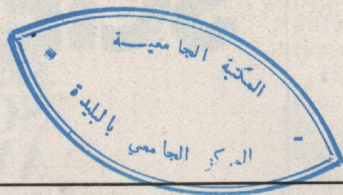 المكتبة الجامعيـــة
المركز الجامعي بالبليدة